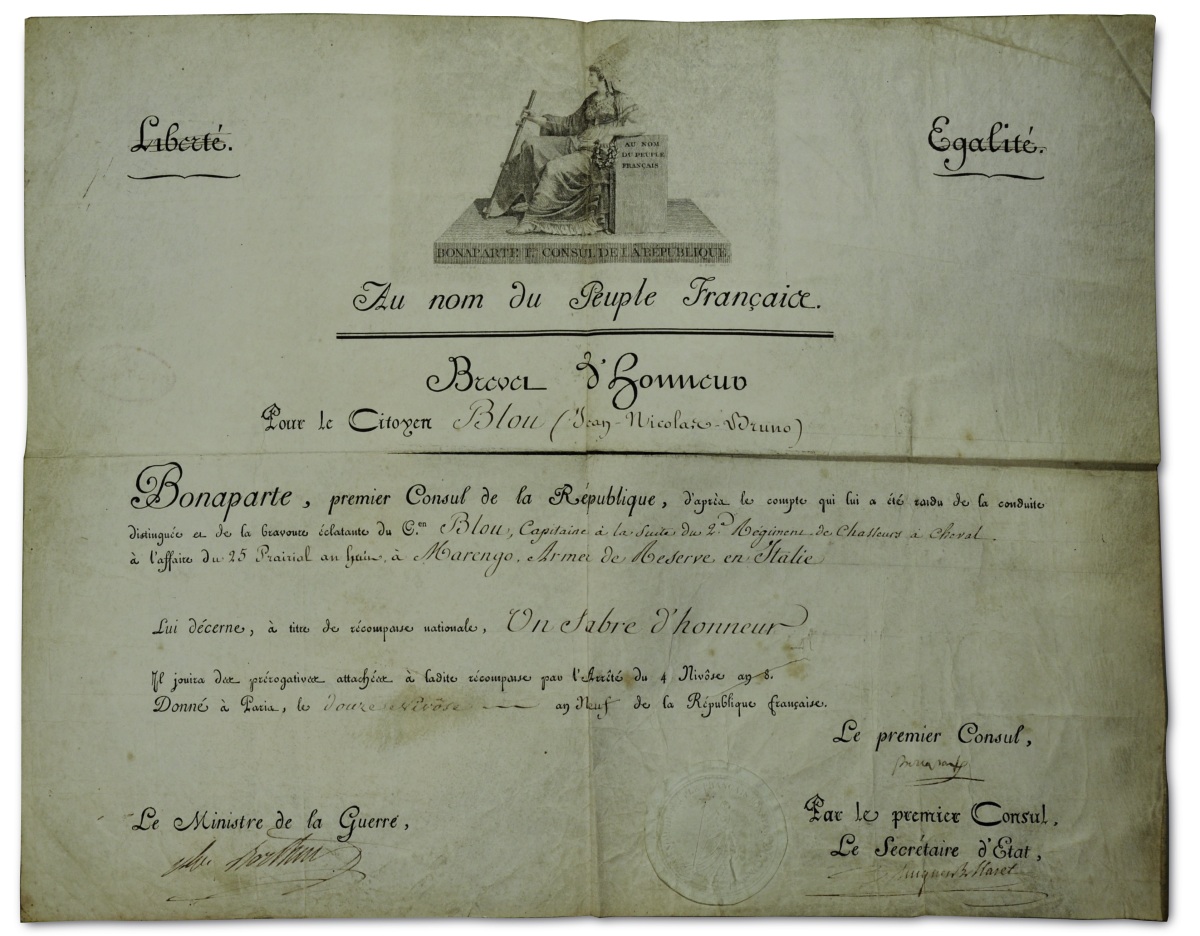 Liberté.
Egalité.
AU NOM
DU PEUPLE
FRANÇAIS
BONAPARTE 1er CONSUL DE LA REPUBLIQUE
Au nom du Peuple Français.
Brevet d'Honneur
Pour le Citoyen Blou (Jean-Nicolas-Bruno)
Bonaparte, premier Consul de la République, d'après le compte qui lui a été rendu de la conduite
distinguée et de la bravoure éclatante du C.en Blou, Capitaine à la Suite du 2.d Régiment de Chasseurs à Cheval
à l'affaire du 25 Prairial an huit, à Marengo, Armée de Reserve en Italie
Lui décerne, à titre de récompense nationale, Un Sabre d'honneur
Il jouira des prérogatives attachées à ladite récompense par l'Arrêté du 4 Nivôse an 8.
Donné à Paris, le douze Nivôse an Neuf de la République française.
Le premier Consul,
Bonaparte
Le Ministre de la Guerre,
Alex Berthier
Par le premier Consul,
Le Secrétaire d'Etat,
Hugues B. Maret